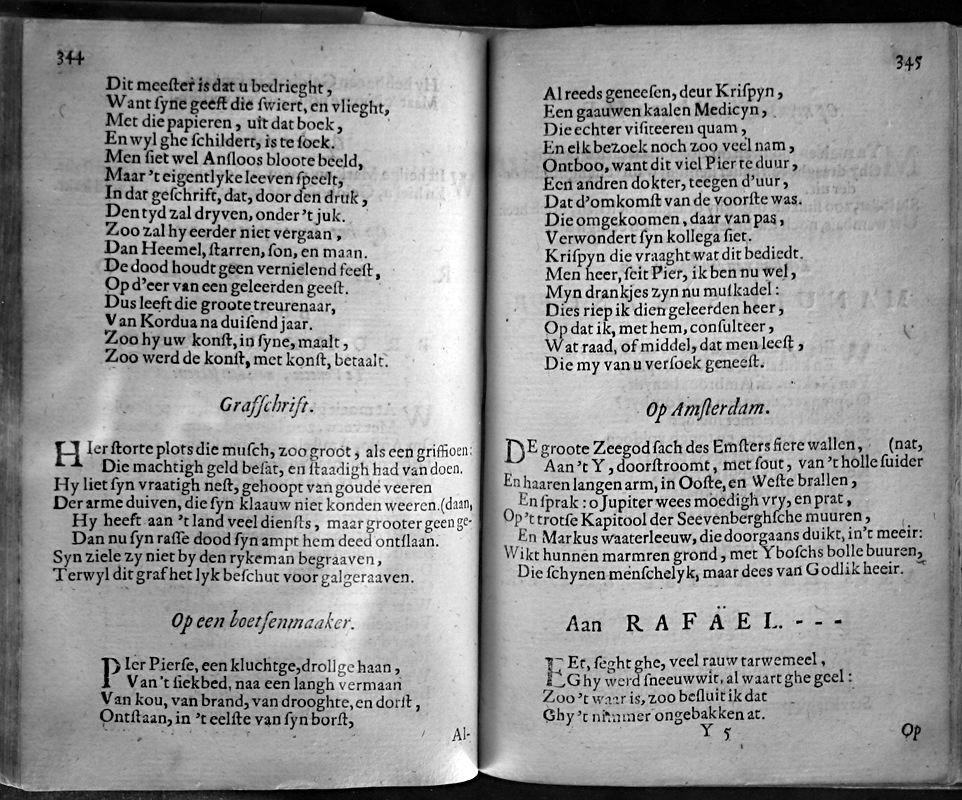 344
Dit meeſter is dat u bedrieght,
Want ſyne geeſt die ſwiert, en vlieght,
Met die papieren, uit dat boek,
En wyl ghe ſchildert, is te ſoek.
Men ſiet wel Anſloos bloote beeld,
Maar 't eigentlyke leeven ſpeelt,
In dat geſchrift, dat, door den druk,
Den tyd zal dryven, onder 't juk.
Zoo zal hy eerder niet vergaan,
Dan Heemel, ſtarren, ſon, en maan.
De dood houdt geen vernielend feeſt,
Op d'eer van een geleerden geeſt.
Dus leeft die groote treurenaar,
Van Kordua na duiſend jaar.
Zoo hy uw konſt, in ſyne, maalt,
Zoo werd de konſt, met konſt, betaalt.
Grafſchrift.
HIer ſtorte plots die muſch, zoo groot, als een griffioen:
Die machtigh geld beſat, en ſtaadigh had van doen.
Hy liet ſyn vraatigh neſt, gehoopt van goude veeren
Der arme duiven, die ſyn klaauw niet konden weeren.(daan,
Hy heeft aan 't land veel dienſts, maar grooter geen ge-
Dan nu ſyn raſſe dood ſyn ampt hem deed ontſlaan.
Syn ziele zy niet by den rykeman begraaven,
Terwyl dit graf het lyk beſchut voor galgeraaven.
Op een boetſenmaaker.
PIer Pierſe, een kluchtge, drollge haan,
Van 't ſiekbed, naa een langh vermaan
Van kou, van brand, van drooghte, en dorſt,
Ontſtaan, in 't eelſte van ſyn borſt,
Al-
345
Al reeds geneeſen, deur Kriſpyn,
Een gaauwen kaalen Medicyn,
Die echter viſiteeren quam,
En elk bezoek noch zoo veel nam,
Ontboo, want dit viel Pier te duur,
Een andren dokter, teegen d'uur,
Dat d'omkomſt van de voorſte was.
Die omgekoomen, daar van pas,
Verwondert ſyn kollega ſiet.
Kriſpyn die vraaght wat dit bediedt.
Men heer, ſeit Pier, ik ben nu wel,
Myn drankjes zyn nu muſkadel:
Dies riep ik dien geleerden heer,
Op dat ik, met hem, conſulteer,
Wat raad, of middel, dat men leeſt,
Die my van u verſoek geneeſt.
Op Amſterdam.
DE groote Zeegod ſach des Emſters fiere wallen, (nat,
Aan 't Y, doorſtroomt, met ſout, van 't holle ſuider
En haaren langen arm, in Ooſte, en Weſte brallen,
En ſprak: o Jupiter wees moedigh vry, en prat,
Op 't trotſe Kapitool der Seevenberghſche muuren,
En Markus waaterleeuw, die doorgaans duikt, in 't meeir:
Wikt hunnen marmren grond, met Yboſchs bolle buuren,
Die ſchynen menſchelyk, maar dees van Godlik heeir.
Aan RAFAËL. - - -
EEt, ſeght ghe, veel rauw tarwemeel,
Ghy werd ſneeuwwit, al waart ghe geel:
Zoo 't waar is, zoo beſluit ik dat
Ghy 't nimmer ongebakken at.
Y 5
Op